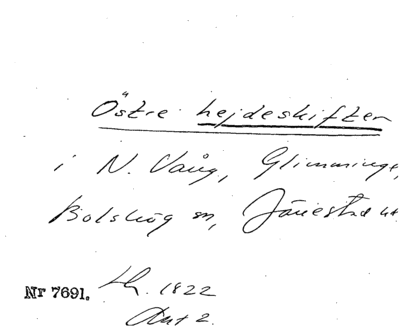 Östre hejdeskiften
i N. Vång, Glimminge,
Bolshög m, Järrestad
Nr 7691. 1822
2.